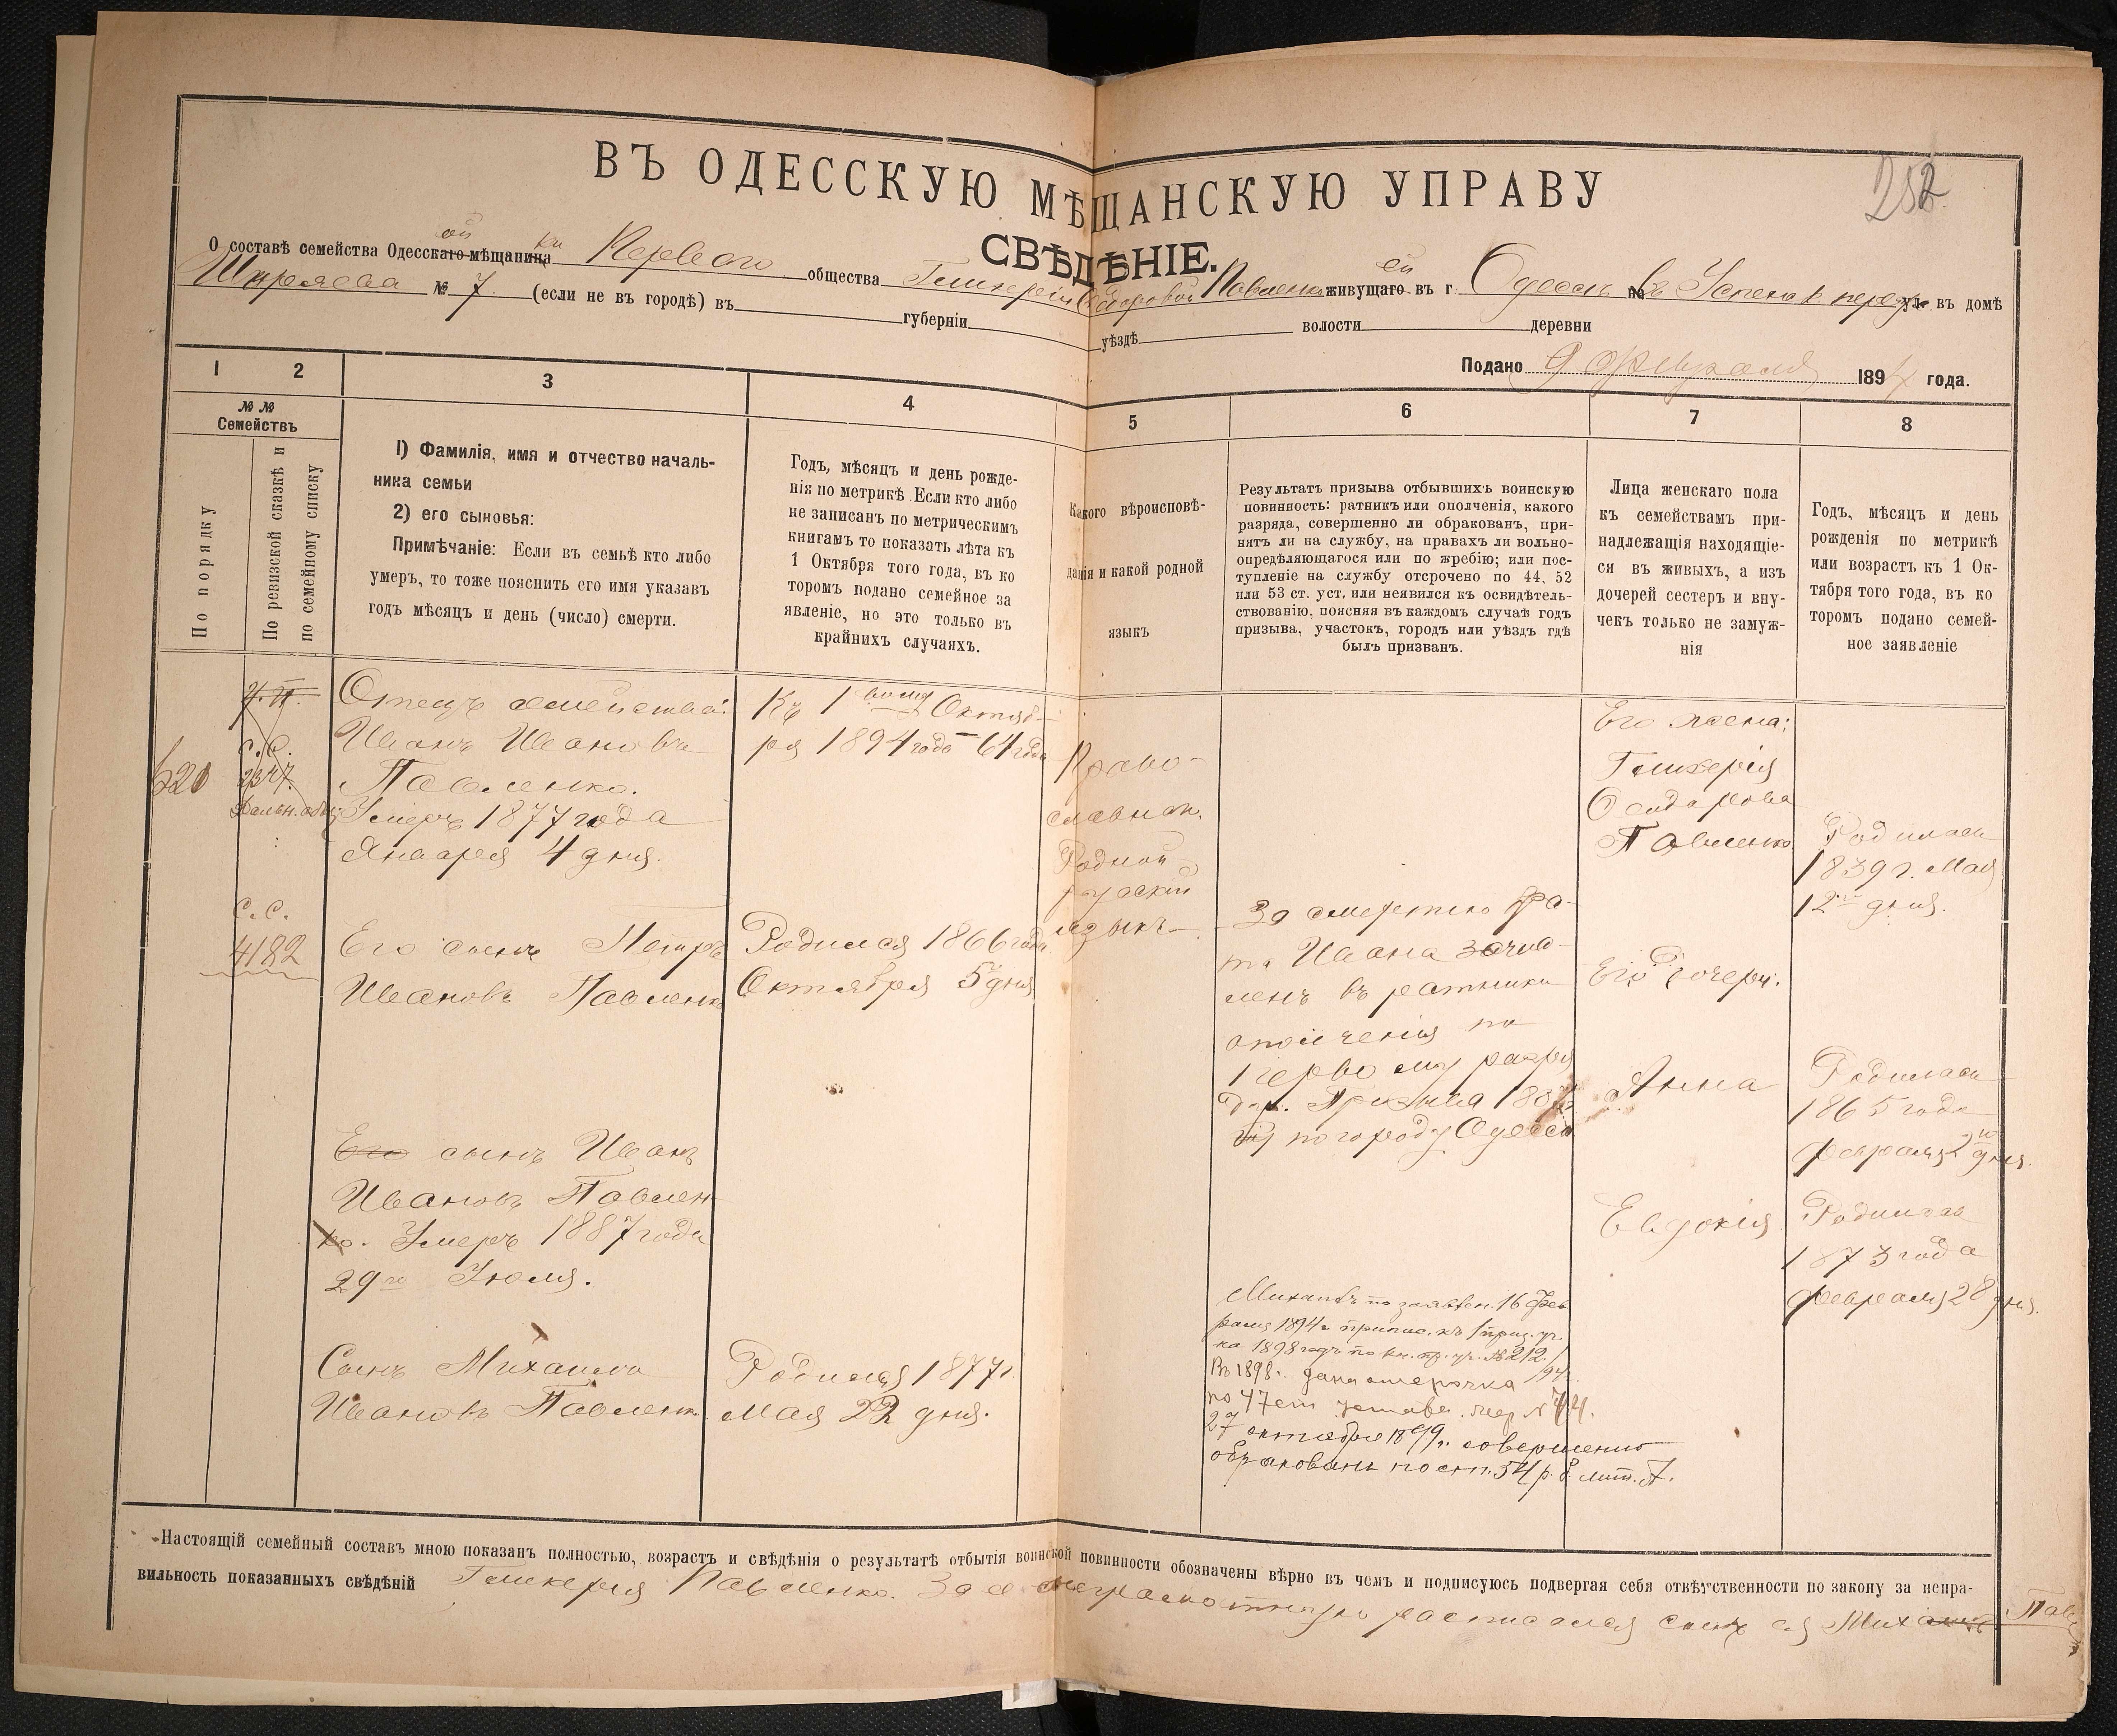 ВЪ ОДЕССКУЮ МѢЩАНСКУЮ УПРАВУ
252.
СВѢДѢНІЕ.
О составѣ семейства Одесскаго ой мѣщанина ки Перваго общества Гликеріи Павленко живущаго ей въ г. Одессѣ на въ Успенск. переул. въ домѣ
Ширяева № 7. (если не въ городѣ) въ губерніи уѣздѣ волости деревни
Подано 9 февраля 1894 года.
1 2 3 4 5 6 7 8
№ № Семействъ
По порядку
По ревизской сказкѣ и
по семейному списку
1) Фамилія, имя и отчество началь-
ника семьи
2) его сыновья:
Примѣчаніе: Если въ семьѣ кто либо
умеръ, то тоже пояснить его имя указавъ
годъ мѣсяцъ и день (число) смерти.
Годъ, мѣсяцъ и день рожде-
нія по метрикѣ. Если кто либо
не записанъ по метрическимъ
книгамъ то показать лѣта къ
1 Октября того года, въ ко
торомъ подано семейное за
явленіе, но это только въ
крайнихъ случаяхъ.
Какого вѣроисповѣ-
данія и какой родной
языкъ
Результатъ призыва отбывшихъ воинскую
повинность: ратникъ или ополченія, какого
разряда, совершенно ли обракованъ, при-
нятъ ли на службу, на правахъ ли вольно-
опредѣляющагося или по жребію; или пос-
тупленіе на службу отсрочено по 44, 52
или 53 ст. уст. или неявился къ освидѣтель-
ствованію, поясняя въ каждомъ случаѣ годъ
призыва, участокъ, городъ или уѣздъ гдѣ
былъ призванъ.
Лица женскаго пола
къ семействамъ при-
надлежащія находящіе-
ся въ живыхъ, а изъ
дочерей сестеръ и вну-
чекъ только не замуж-
нія
Годъ, мѣсяцъ и день
рожденія по метрикѣ
или возрастъ къ 1 Ок-
тября того года, въ ко
торомъ подано семей-
ное заявленіе
620
с. с.
2347.
Отецъ семейства:
Иванъ Ивановъ
Павленко.
Умеръ 1877 года
Января 4 дня.
Къ 1 вому Октяб-
ря 1894 года 64 года
Право-
славнаго.
Родной
руский
языкъ
Его жена:
Гликерія
Павленко
Родилась
1839 г. Мая
12 дня.
с. с.
4182
Его сынъ Петръ
Ивановъ Павленко
Родился 1866 года
Октября 5 дня
За смертію бра-
та Ивана зачис-
ленъ въ ратники
ополченія по
первому разря
ду. Призыва
по городу Одесса
Его дочери:
Анна
Родилась
1865 года
февраля дня.
Его сынъ Иванъ
Ивановъ Павлен-
ко. Умеръ 1887 года
29го Іюля.
Евдокія
Родилась
1873 года
февраля 28 дня.
Сынъ Михаилъ
Ивановъ Павленк.
Родился 1877 г.
мая 22 дня.
Михаилъ по заявлен. 16 Фев
раля 1894 г. припис. къ 1 приз. уч.
ка 1898 годъ №212.
Въ 1898 г. дана отсрочка
по 47 ст. устава
27 октября 1899 г. совершенно
обракованъ по ст. 54 лит. А.
Настоящій семейный составъ мною показанъ полностью, возрастъ и свѣдѣнія о результатѣ отбытія воинской повинности обозначены вѣрно въ чемъ и подписуюсь подвергая себя отвѣтственности по закону за непра-
вильность показанныхъ свѣдѣній Гликерія Павленко. За ея неграмотную расписался сынъ ея Михаилъ Павл